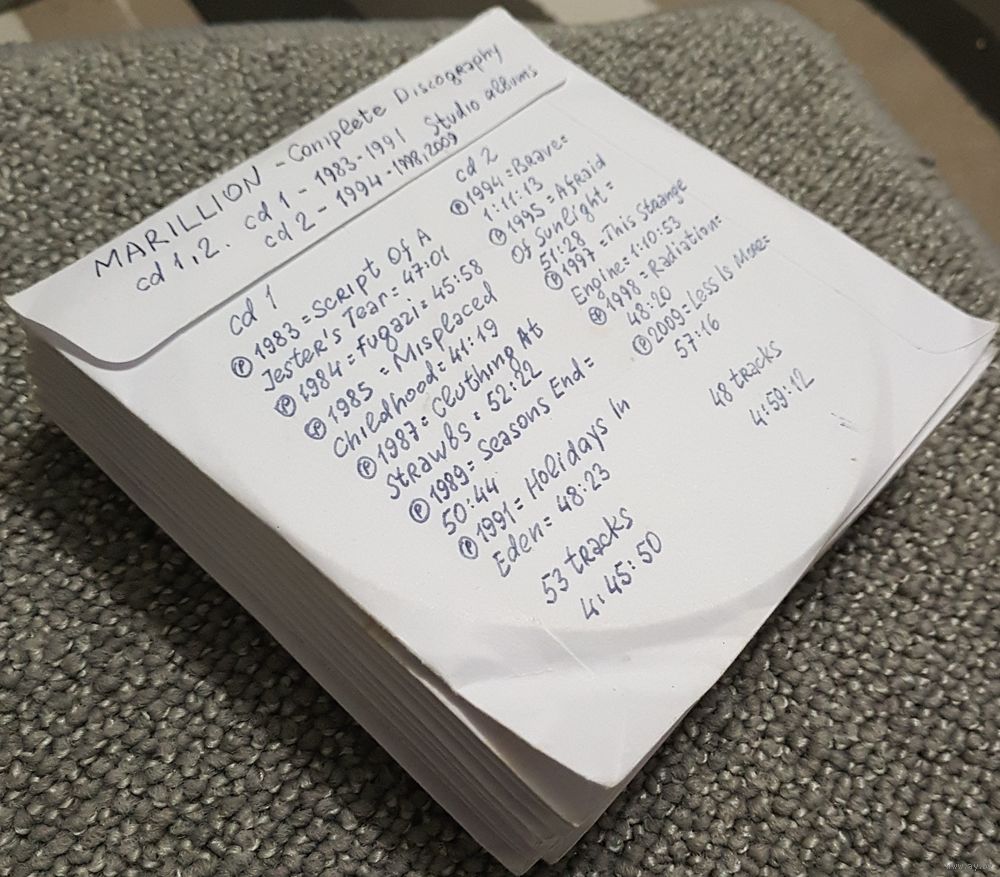 MARILLION - Complete Discography
cd 1,2. cd 1 - 1983-1991 Studio albums
cd 2 - 1994 - 1998, 2009
cd 1
Ⓟ 1983 = Script Of A
Jester's Tear = 47:01
Ⓟ 1984 = Fugazi = 45:58
Ⓟ 1985 = Misplaced
Childhood = 41:19
Ⓟ 1987 = Cluthing At
Strawbs = 52:22
Ⓟ 1989 = Seasons End =
50:44
Ⓟ 1991 = Holidays In
Eden = 48:23
53 tracks
4:45:50
cd 2
Ⓟ 1994 = Brave =
1:11:13
Ⓟ 1995 = Afraid
Of Sunlight =
51:28
Ⓟ 1997 = This Strange
Engine = 1:10:53
Ⓟ 1998 = Radiation =
48:20
Ⓟ 2009 = Less Is More =
57:16
48 tracks
4:59:12